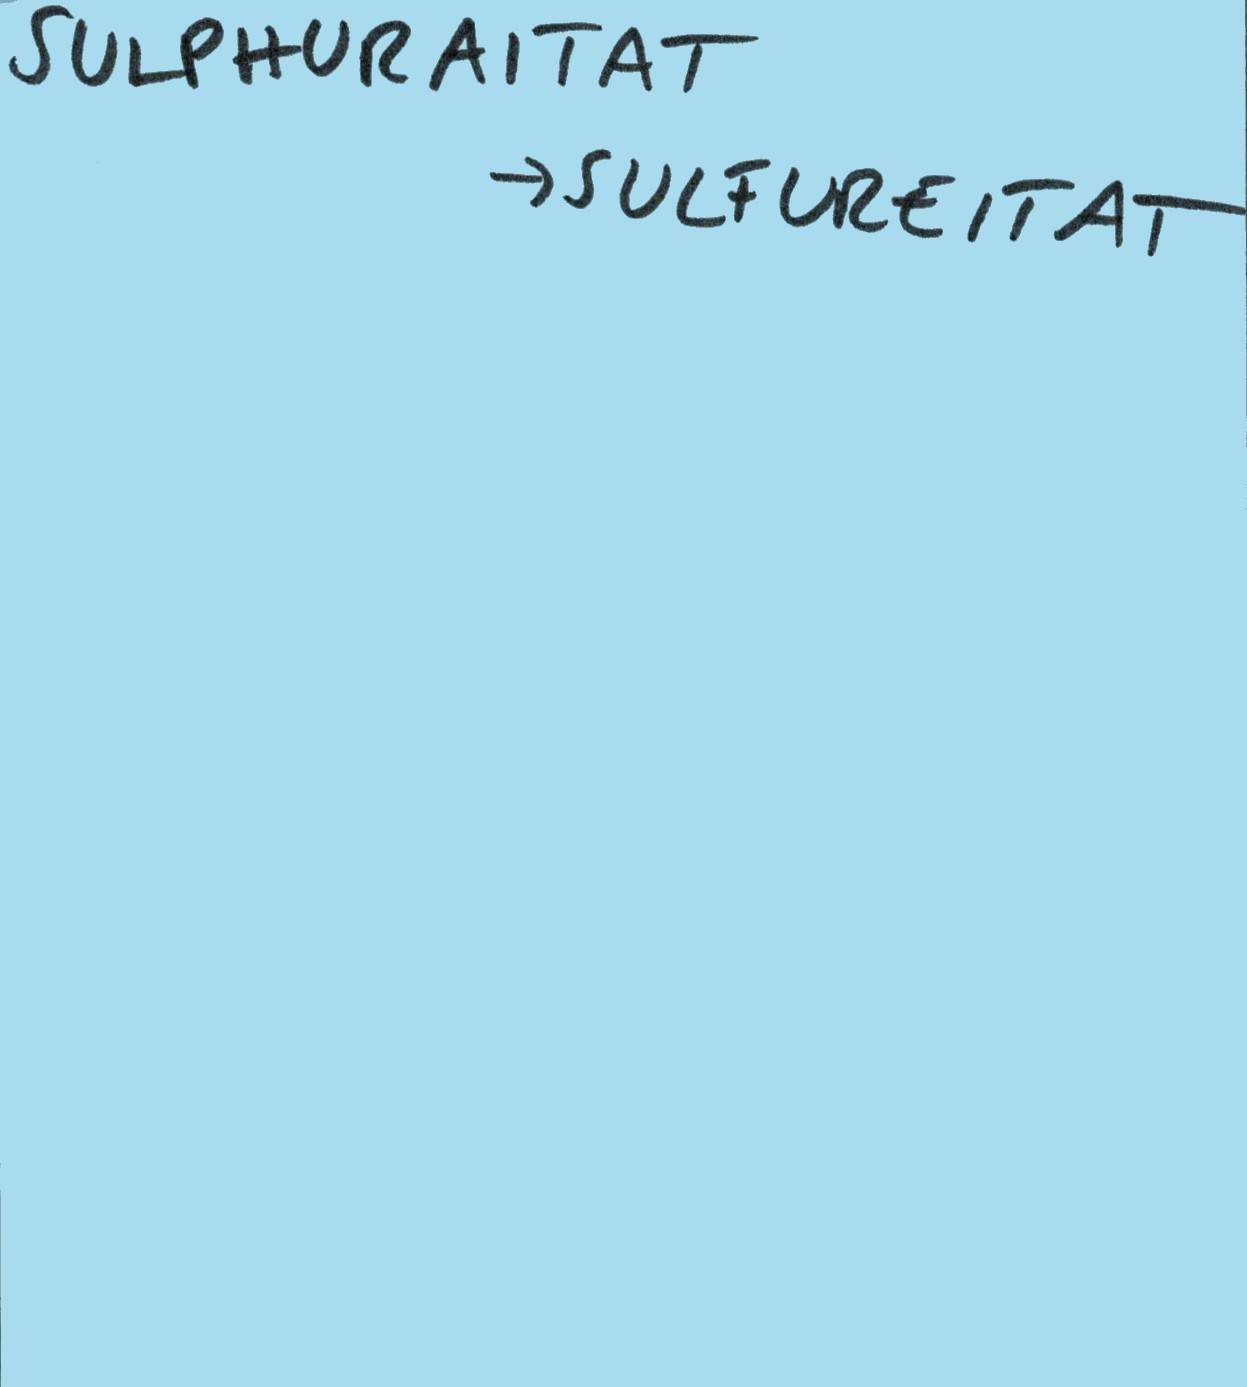 SULPHURAITAT
→SULFUREITAT